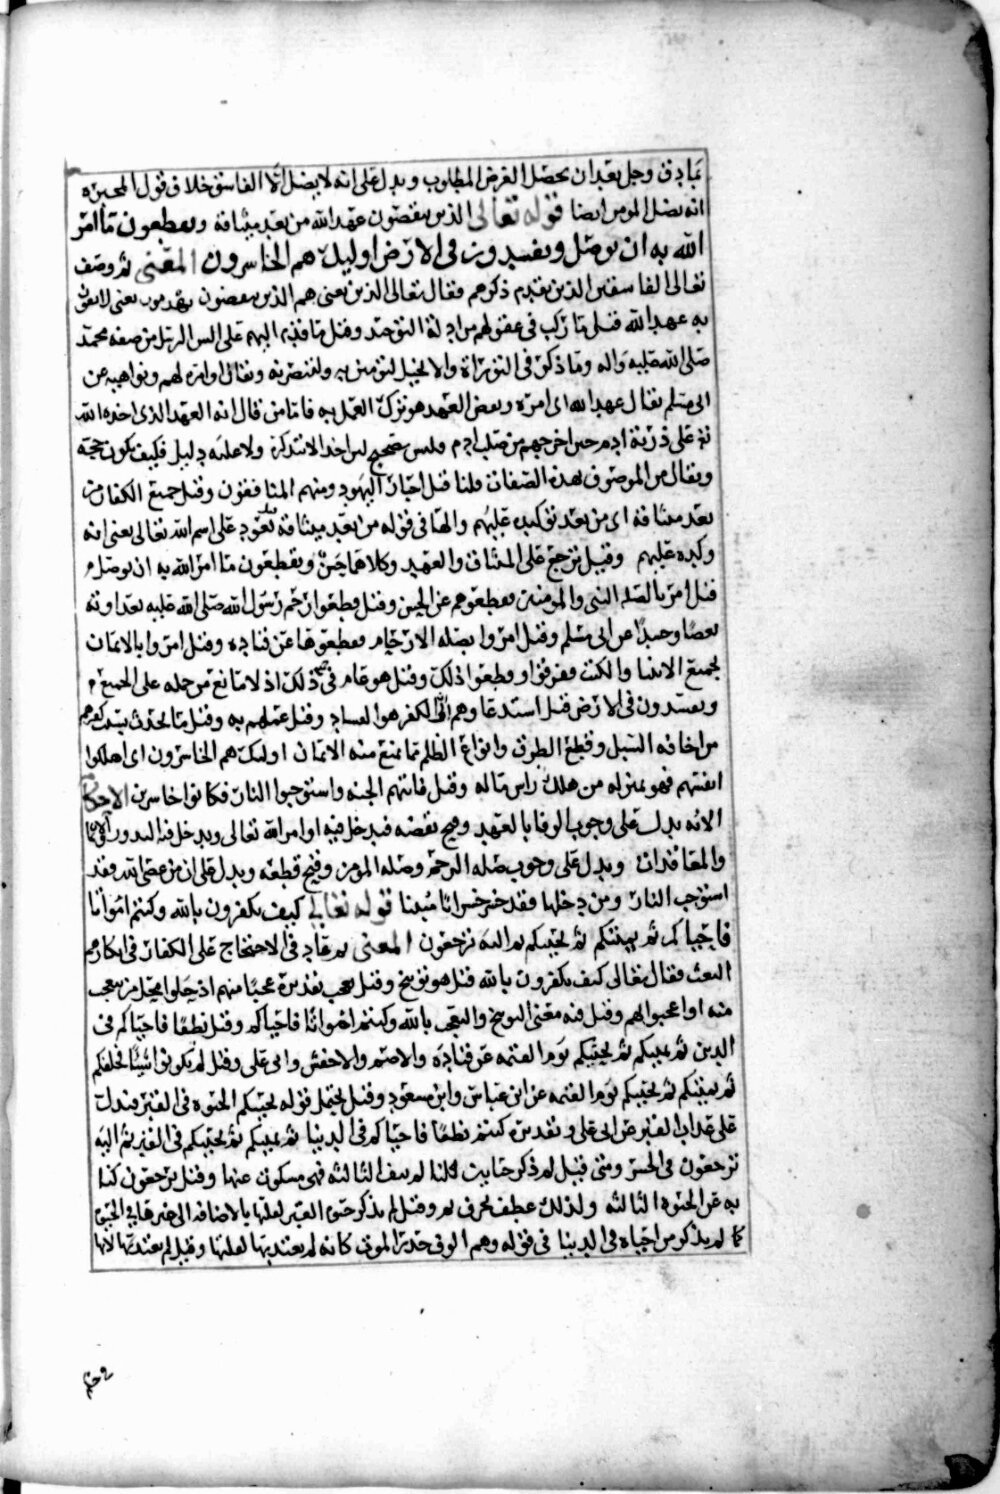 بمادق وجل بعد ان يحصل الغرض المطلوب ويدل على انه لا يضل الا الفاسق خلاف قول المجبرة
انه يضل المومن ايضا قوله تعالى الذين ينقضون عهد الله من بعد ميثاقه ويقطعون ما امر
الله به ان يوصل ويفسدون في الارض اوليك هم الخاسرون المعنى ثم وصف
تعالى الفاسقين الذين تقدم ذكرهم فقال تعالى الذين يعني هم الذين ينقضون يهدمون يعني لا يفون
به عهد الله قيل ما ركب في عقولهم من ادلة التوحيد وقيل ما قدم اليهم على السن الرسل من صفه محمد
صلى الله عليه واله وما ذكر في التوراة والانجيل لتومنن به ولتنصرنه وقيل اوامره لهم ونواهيه عن
ابي مسلم يقال عهد الله اى امره ونقض العهد هو ترك العمل به فاما من قال انه العهد الذى اخذه الله
على ذرية ادم حين اخرجهم من صلب ادم فليس صحيح ليس احد الا يتذكره ولا عليه دليل فكيف يكون حجة
ويقال من الموصوف بهذه الصفات قلنا قيل احبار اليهود ومنهم المنافقون وقيل جميع الكفار من
بعد ميثاقه اى من بعد توكيده عليهم والها في قوله من بعد ميثاقه تعود على اسم الله تعالى يعني انه
وكده عليهم وقيل ترجع على الميثاق والعهد وكلاهما حسن ويقطعون ما امر الله به ان يوصل
قيل امر بالصله النبي والمومنين فقطعوهم عن الحسن وقيل قطعوا رحم رسول الله صلى الله عليه بعداوته
عن ابي مسلم وقيل امروا بصله الارحام فقطعوها عن قتاده وقيل امروا بالايمان
بجميع الانبيا والكتب ففرقوا وقطعوا ذلك وقيل هو عام في ذلك اذ لا مانع من حمله على الجميع
ويفسدون في الارض قيل استدعاوهم الى الكفر هو الفساد وقيل عملهم به وقيل ما يحدث بسبب كفرهم
من اخافه السبل وقطع الطرق وانواع الظلم مما يمنع منه الايمان اولئك هم الخاسرون اى اهلكوا
انفسهم فهو بمنزله من هلك راس ماله وقيل فاتتهم الجنه واستوجبوا النار فكانوا خاسرين الاحكام
الايه يدل على وجوب الوفا بالعهد وقبح نقضه فيدخل فيه اوامر الله تعالى ويدخل فيه النذور والايمان
والمعاقدات ويدل على وجوب صله الرحم وصله المومن وقبح قطعه ويدل على ان من عصى الله فقد
استوجب النار ومن دخلها فقد خسر خسرانا مبينا قوله تعالى كيف تكفرون بالله وكنتم امواتا
فاحياكم ثم يميتكم ثم يحييكم ثم اليه ترجعون المعنى ثم عاد في الاحتجاج على الكفار في انكارهم
البعث فقال تعالى كيف تكفرون بالله قيل هو توبيخ وقيل تعجب تقديره عجبا منهم اذ حلوا محل من يعجب
منه او اعجبوا لهم وقيل فيه معنى التوبيخ والتعجب بالله وكنتم امواتا فاحياكم وقيل نطفا فاحياكم في
الدين ثم يميتكم ثم يحييكم يوم القيمه عن قتادة والاصم والاخفش وابي على وقيل لم يكونوا شيئا فخلقكم
ثم يميتكم ثم يحييكم يوم القيمه عن ابن عباس وابن مسعود وقيل يحتمل قوله يحييكم الحيوه في القبر فيدل
على عذاب القبر عن ابي على وتقديره كنتم نطفا فاحياكم في الدنيا ثم يميتكم ثم يحييكم في القبر ثم اليه
ترجعون في الحشر ومتى قيل لم ذكر قلنا لم ينف الثالثه فهي مسكوت عنها وقيل ترجعون كنا
به عن الحيوه الثالثه ولذلك عطف بحرف ثم وقيل لم يذكر حيوة القبر لقلتها بالاضافه الى غيرها في الحيوه
كما لم يذكر من احياه في الدنيا في قوله وهم الوف حذر الموت كانه لم يعتد بها لقلتها وقيل لم يعتد بها لانها